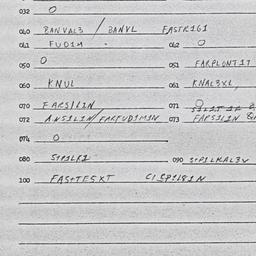 032 O
040 BANVAL3 / BANVL FASTR161
041 FUD1M 042 O
050 O 051 FARPLONT17
060 KNUL 061 KNAL3XL,
070 FARS1L1N 071 O
072 ANS1L1N/FARFUD1M1N 073 FARS1L1N
074 O
080 S+P1LR1 090 S+P1LKAL3V
100 FAS+TE5XT C1SP1L81N